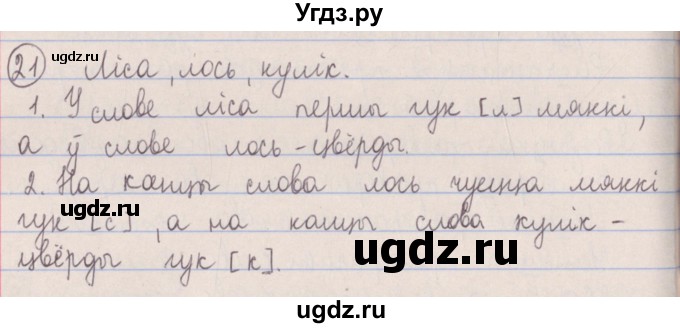 Угдз.ру
21 Ліса, лось, кулік.
1. У слове ліса першы гук [л] мяккі,
а ў слове лось - цвёрды.
2. На канцы слова лось чуецца мяккі
гук [с], а на канцы слова кулік -
цвёрды гук [к].
ugdz.ru
ugdz.ru
ugdz.ru
ugdz.ru
ugdz.ru
ugdz.ru
ugdz.ru
ugdz.ru